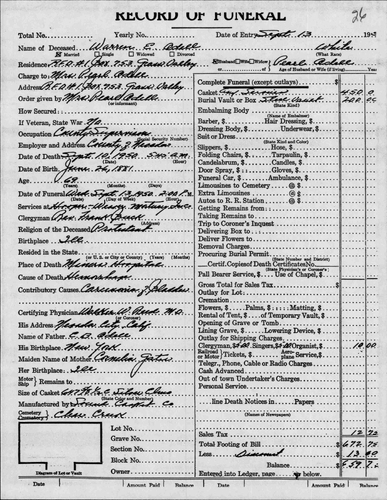 RECORD OF FUNERAL
26
Total No. Yearly No. Date of Entry Sept. 13 19
Name of Deceased Warren E. White
Married Single Widowed Divorced (What Race)
Residence R.F.D. #1 Box 953 Grass Valley Husband Wife Pearl
Widow of Age of Husband or Wife (if living)
Charge to Mrs. Pearl
Address R.F.D. #1 Box 953 Grass Valley
Order given by Mrs. Pearl
(or informant)
How Secured
If Veteran, State War No
Occupation County Supervisor
(Social Security Number)
Employer and Address County of Nevada
Date of Death Sept. 10, 1950
Date of Birth June 26, 1881
Age 69
(Years) (Months) (Days)
Date of Funeral Wed. Sept 13, 1950 2:00 P.M.
Services at Hooper-Weaver Mortuary
Clergyman Rev. Frank
Religion of the Deceased Protestant
Birthplace Ill
Resided in the State
(or U.S. or City or County) (Years) (Months)
Place of Death Hospital
Cause of Death Hemorrhage
Contributory Causes Carcinoma of Bladder
Certifying Physician M.D.
His Address Nevada City, Calif.
Name of Father C. B.
His Birthplace New York
Maiden Name of Mother
Her Birthplace Ill
Motor
Ship Remains to
Size of Casket Silver
(State Color and Number)
Manufactured by Casket Co
Cemetery
Crematory
Lot No.
Grave No.
Section No.
Block No.
Owner
Diagram of Lot or Vault
Complete Funeral (except outlays) $
Casket 450 0
(State Kind)
Burial Vault or Box 200 00
(State Kind)
Embalming Body
(Name of Embalmer)
Barber, $ Hair Dressing, $
Dressing Body, $ Underwear, $
Suit or Dress
(State Kind and Color)
Slippers, $ Hose, $
Folding Chairs, $ Tarpaulin, $
Candelabrum, $ Candles, $
Door Spray, $ Gloves, $
Funeral Car, $ Ambulance, $
Limousines to Cemetery @ $
Extra Limousines @ $
Autos to R. R. Station @ $
Getting Remains from
Taking Remains to
Use of Trucks—Outgoing Box
Delivering Box to
Deliver Flowers to
Removal Charges
Procuring Burial Permit
(State Number and District)
Certif. Copies of Death Certificate No.
(State Physician's or Coroner's)
Pall Bearer Service, $ Use of Chapel, $
Outlay for Lot
Cremation
Flowers, $ Palms, $ Matting, $
Rental of Tent, $ of Temporary Vault, $
Opening of Grave or Tomb
Lining Grave, $ Lowering Device, $
Outlay for Shipping Charges
Clergyman, $ Singers, $ Organist, $ 10 00
Railroad or Motor Tickets, $ Aeroplane Service, $
Telegr., Phone, Cable or Radio Charges
Cash Advanced
Out of town Undertaker's Charges
Personal Service
line Death Notices in Papers
(Names of Newspapers)
Sales Tax
Total Footing of Bill $ 672
Less Discount 13
Balance $ 659
Entered into Ledger, page below.
Date Amount Paid Balance Date Amount Paid Balance